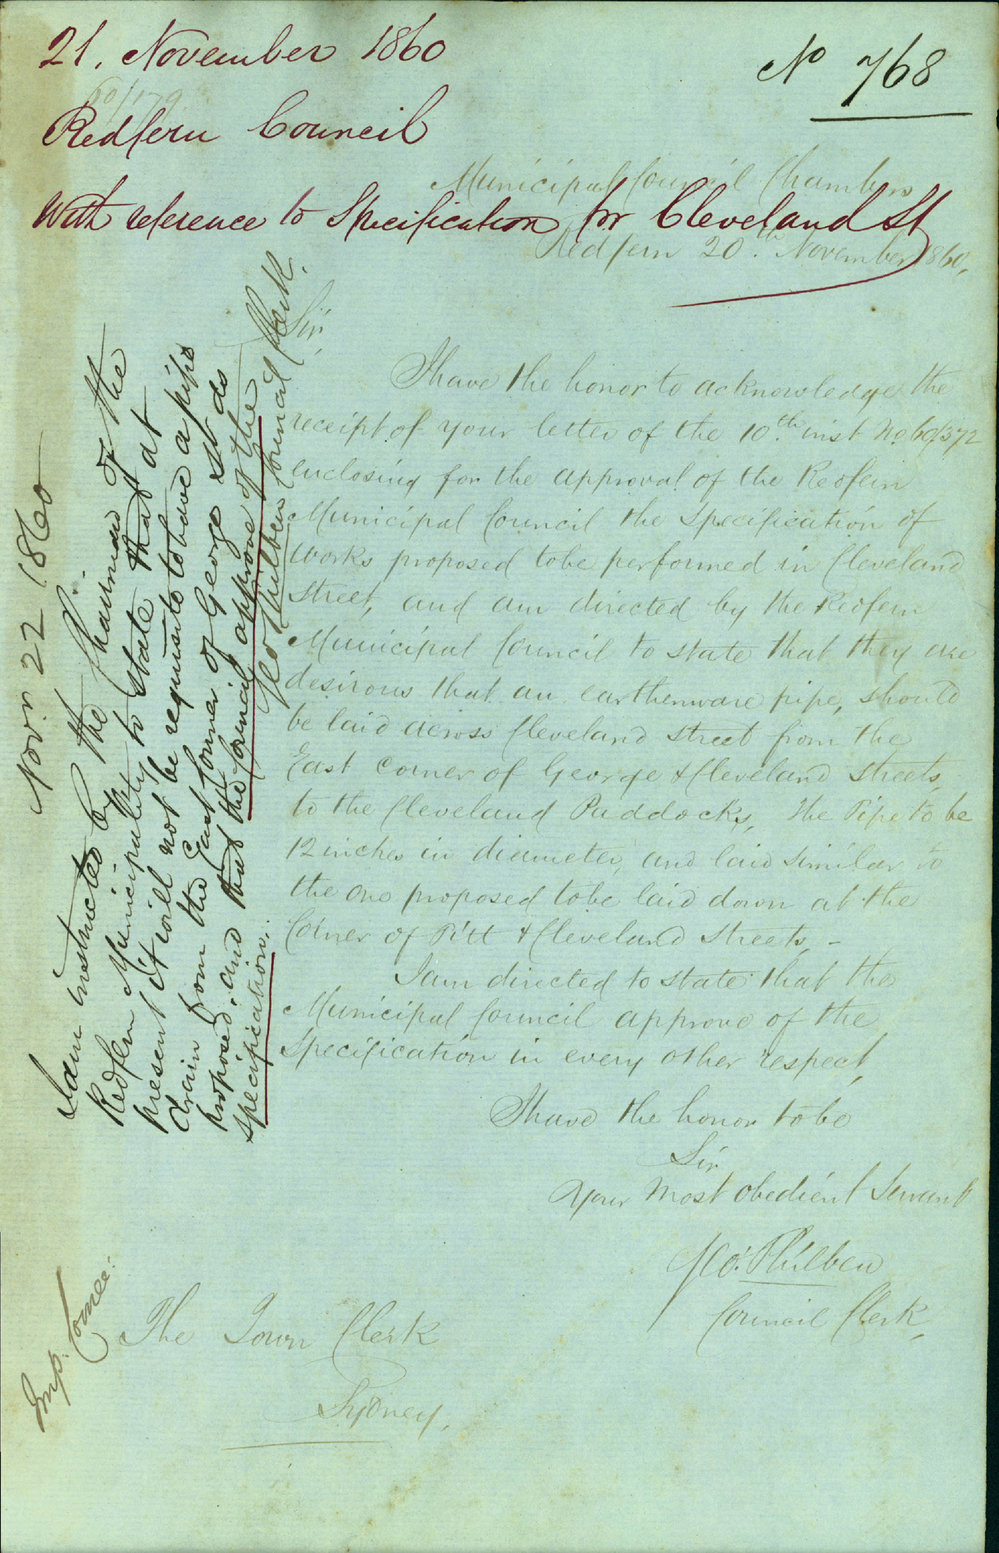 21. November 1860
No 768
60/179
Redfern Council
With reference to Specification for Cleveland St
Municipal Council Chambers
Redfern 20th November 1860,
Sir,
I have the honor to acknowledge the
receipt of your letter of the 10th inst No 60/372
enclosing for the approval of the Redfern
Municipal Council the Specification of
works proposed to be performed in Cleveland
Street, and am directed by the Redfern
Municipal Council to state that they are
desirous that an earthenware pipe, should
be laid across Cleveland Street from the
East corner of George & Cleveland Streets,
to the Cleveland Paddocks, The Pipe to be
12 inches in diameter, and laid similar to
the one proposed to be laid down at the
Corner of Pitt & Cleveland Streets, -
I am directed to state that the
Municipal Council approve of the
Specification in every other respect,
I have the honor to be
Sir
Your Most obedient Servant
Geo: Philben
Council Clerk,
The Town Clerk
Sydney.
Novr. 22 1860
I am instructed by the Chairman of the
Redfern Municipality to state that at
present it will not be requisite to have a pipe
drain from the East Corner of George St as
proposed, and that the Council approve of the
specification.
Geo Philben Council Clerk.
Imp. Comee: